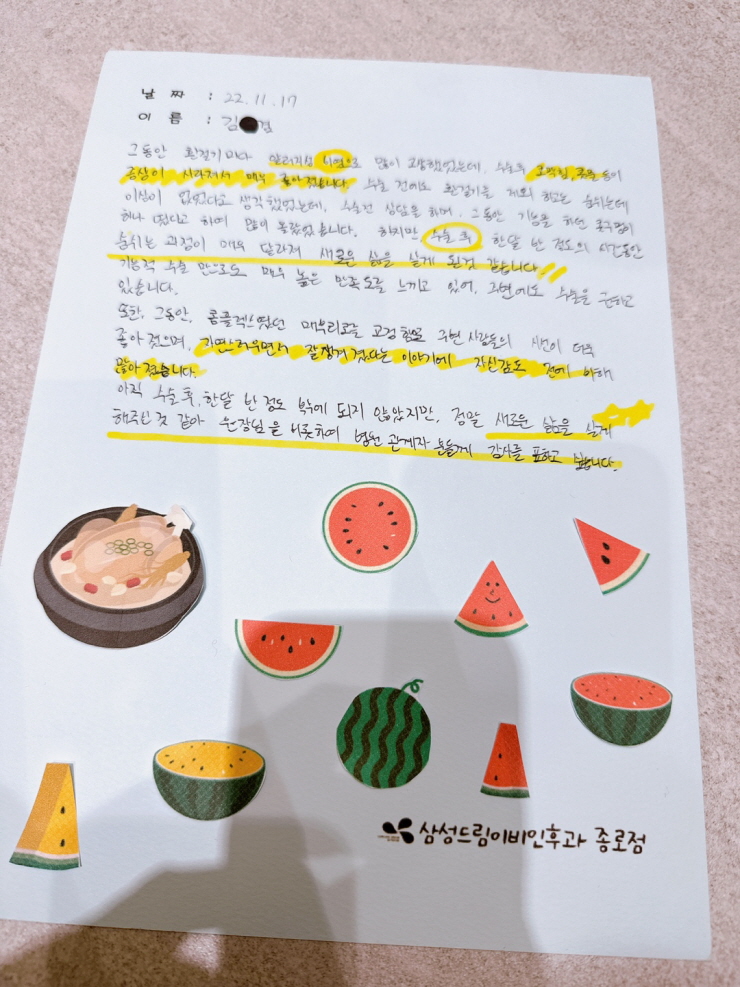 날 짜 : 22.11.17
이 름 : 김 겸
그동안 환절기마다 알러지성 비염으로 많이 고생했었는데, 수술후 코막힘, 콧물 등의
증상이 사라져서 매우 좋아졌습니다. 수술 전에도 환절기를 제외 하고는 숨쉬는데
이상이 없었다고 생각했었는데, 수술전 상담을 하며, 그동안 기능을 하던 콧구멍이
하나 였다고 하여 많이 놀랐었습니다. 하지만 수술 후 한달 반 정도의 시간동안
숨쉬는 과정이 매우 달라져 새로운 삶을 살게 된것 같습니다!!
기능적 수술 만으로도 매우 높은 만족도를 느끼고 있어, 주변에도 수술을 권하고
있습니다.
또한, 그동안, 콤플렉스였던 매부리코를 교정함으로 주변 사람들의 시선이 더욱
좋아 졌으며, 자연스러우면서 잘생겨 졌다는 이야기에 자신감도 전에 비해
많아 졌습니다.
아직 수술 후, 한달 반 정도 밖에 되지 않았지만, 정말 새로운 삶을 살게
해주신 것 같아 원장님을 비롯하여 병원 관계자 분들께 감사를 표하고 싶습니다.
삼성드림이비인후과 종로점